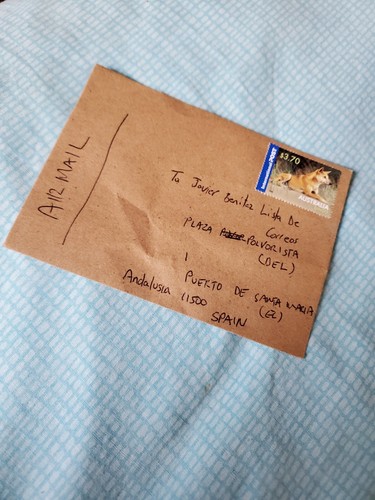 AIR MAIL
International POST
$3.70
AUSTRALIA
To Javier Benitez Lista De
Correos
PLAZA POLVORISTA
(DEL)
1
PUERTO DE SANTA MARIA
(EL)
Andalusia 11500
SPAIN